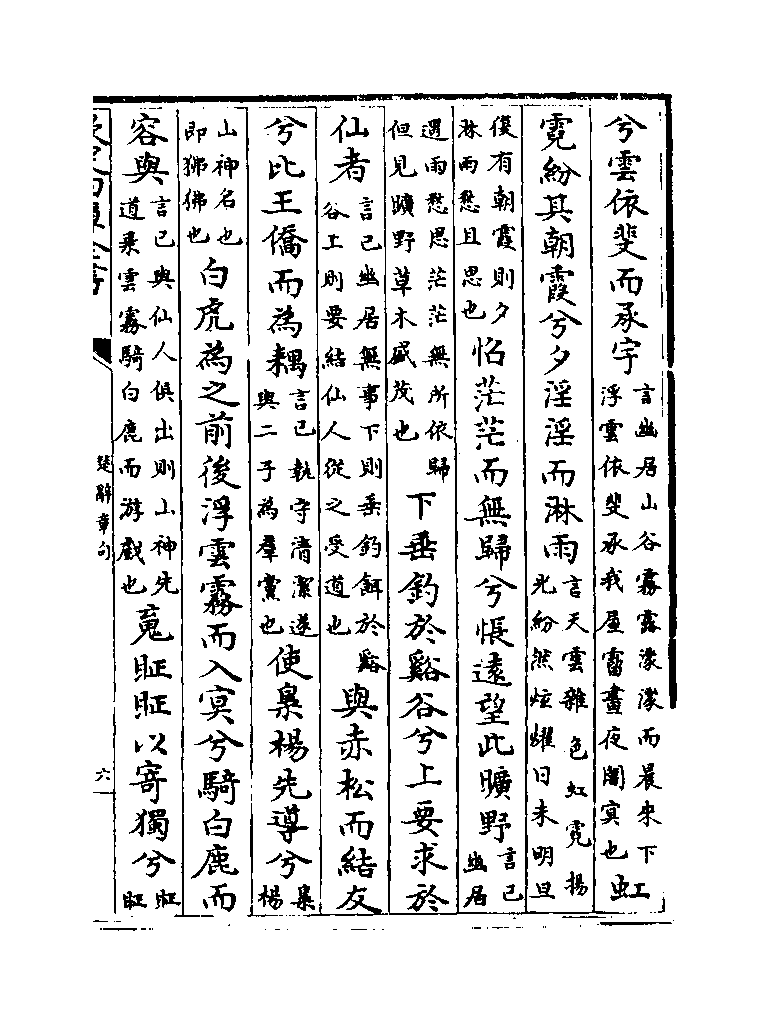 兮雲依斐而承宇言幽居山谷霧露濛濛而晨来下浮雲依斐承我屋霤晝夜闇冥也虹
霓紛其朝霞兮夕淫淫而淋雨言天雲雜色虹霓揚光紛然炫耀日未明旦
復有朝霞則夕淋雨愁且思也怊茫茫而無歸兮悵遠望此曠野言已幽居
遇雨愁思茫茫無所依歸但見曠野草木盛茂也下垂釣於谿谷兮上要求於
仙者言已幽居無事下則垂釣餌於谿谷上則要結仙人從之受道也與赤松而結友
兮比王僑而為耦言已執守清潔遂與二子為羣黨也使梟楊先導兮梟楊
山神名也即狒狒也白虎為之前後浮雲霧而入冥兮騎白鹿而
容與言已與仙人俱出則山神先道乗雲霧騎白鹿而游戲也䰟眐眐以寄獨兮眐眐
楚辭章句
六